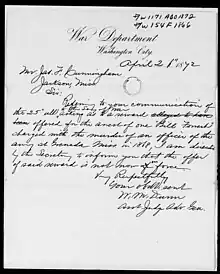 War Department
Washington City,
April 2 1872
Mr Jas. F. Burmingham
Jackson Miss
Sir:
Refering to your communication of
the 25" ult, asking
offered for the arrest of one
charged with the murder of an officer of the
army at Granada Miss in 1868, I am directed
by the Secretary to inform you that the offer
of said reward is not now of force
Very Respectfully
Your Obt Servant
W. M. Dunn
Asst Judge Adv. Gen.